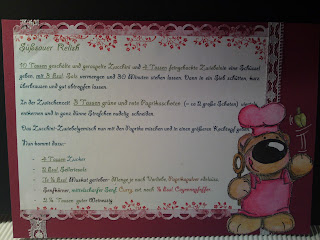 Süßsauer Relish
10 Tassen geschälte und geraspelte Zucchini und 4 Tassen feingehackte Zwiebeln in eine Schüssel
geben, mit 5 Essl. Salz vermengen und 30 Minuten stehen lassen. Dann in ein Sieb schütten, kurz
überbrausen und gut abtropfen lassen.
In der Zwischenzeit 3 Tassen grüne und rote Paprikaschoten (= ca 2 große Schoten) vierteln,
entkernen und in ganz dünne Streifchen nudelig schneiden.
Das Zucchini-Zwiebelgemisch nun mit den Paprika mischen und in einen größeren Kochtopf geben.
Nun kommt dazu:
- 4 Tassen Zucker
- 2 Essl. Selleriesalz
- Essl. Muskat gerieben- Menge je nach Vorliebe, Paprikapulver edelsüss,
Senfkörner, mittelscharfer Senf, Curry, evt. noch ½ Essl. Cayennepfeffer
- 2 ½ Tassen guter Weinessig